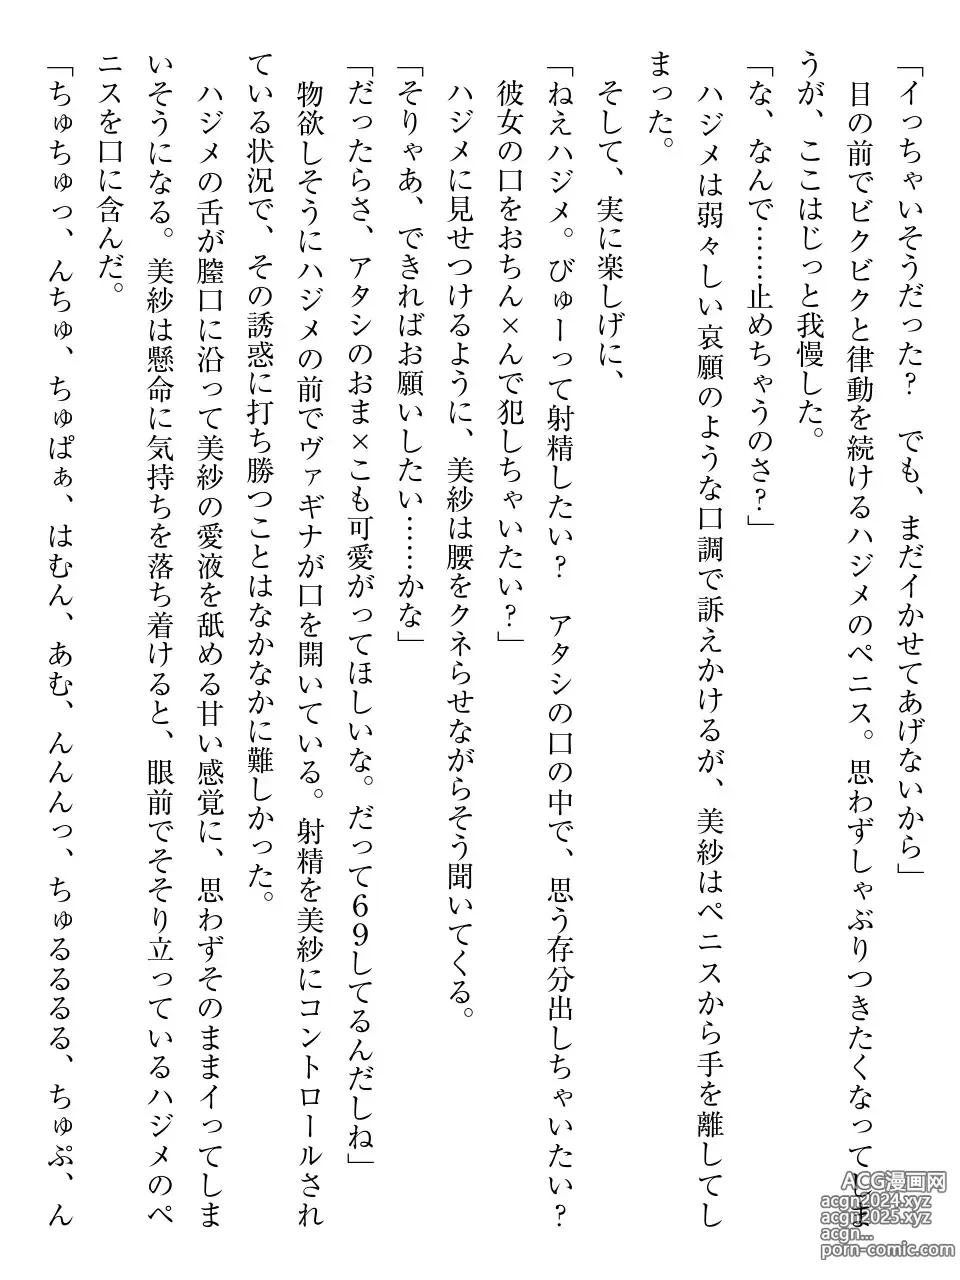 「イっちゃいそうだった?　でも、まだイかせてあげないから」
目の前でビクビクと律動を続けるハジメのペニス。思わずしゃぶりつきたくなってしま
うが、ここはじっと我慢した。
「な、なんで……止めちゃうのさ?」
ハジメは弱々しい哀願のような口調で訴えかけるが、美紗はペニスから手を離してし
まった。
そして、実に楽しげに、
「ねえハジメ。びゅーって射精したい?　アタシの口の中で、思う存分出しちゃいたい?
彼女の口をおちん×んで犯しちゃいたい?」
ハジメに見せつけるように、美紗は腰をクネらせながらそう聞いてくる。
「そりゃあ、できればお願いしたい……かな」
「だったらさ、アタシのおま×こも可愛がってほしいな。だって69してるんだしね」
物欲しそうにハジメの前でヴァギナが口を開いている。射精を美紗にコントロールされ
ている状況で、その誘惑に打ち勝つことはなかなかに難しかった。
ハジメの舌が膣口に沿って美紗の愛液を舐める甘い感覚に、思わずそのままイってしま
いそうになる。美紗は懸命に気持ちを落ち着けると、眼前でそそり立っているハジメのペ
ニスを口に含んだ。
「ちゅちゅっ、んちゅ、ちゅぱぁ、はむん、あむ、んんんっ、ちゅるるるる、ちゅぷ、ん
ACG漫画网
acgn2024.xyz
acgn2025.xyz
acgn...
porn-comic.com